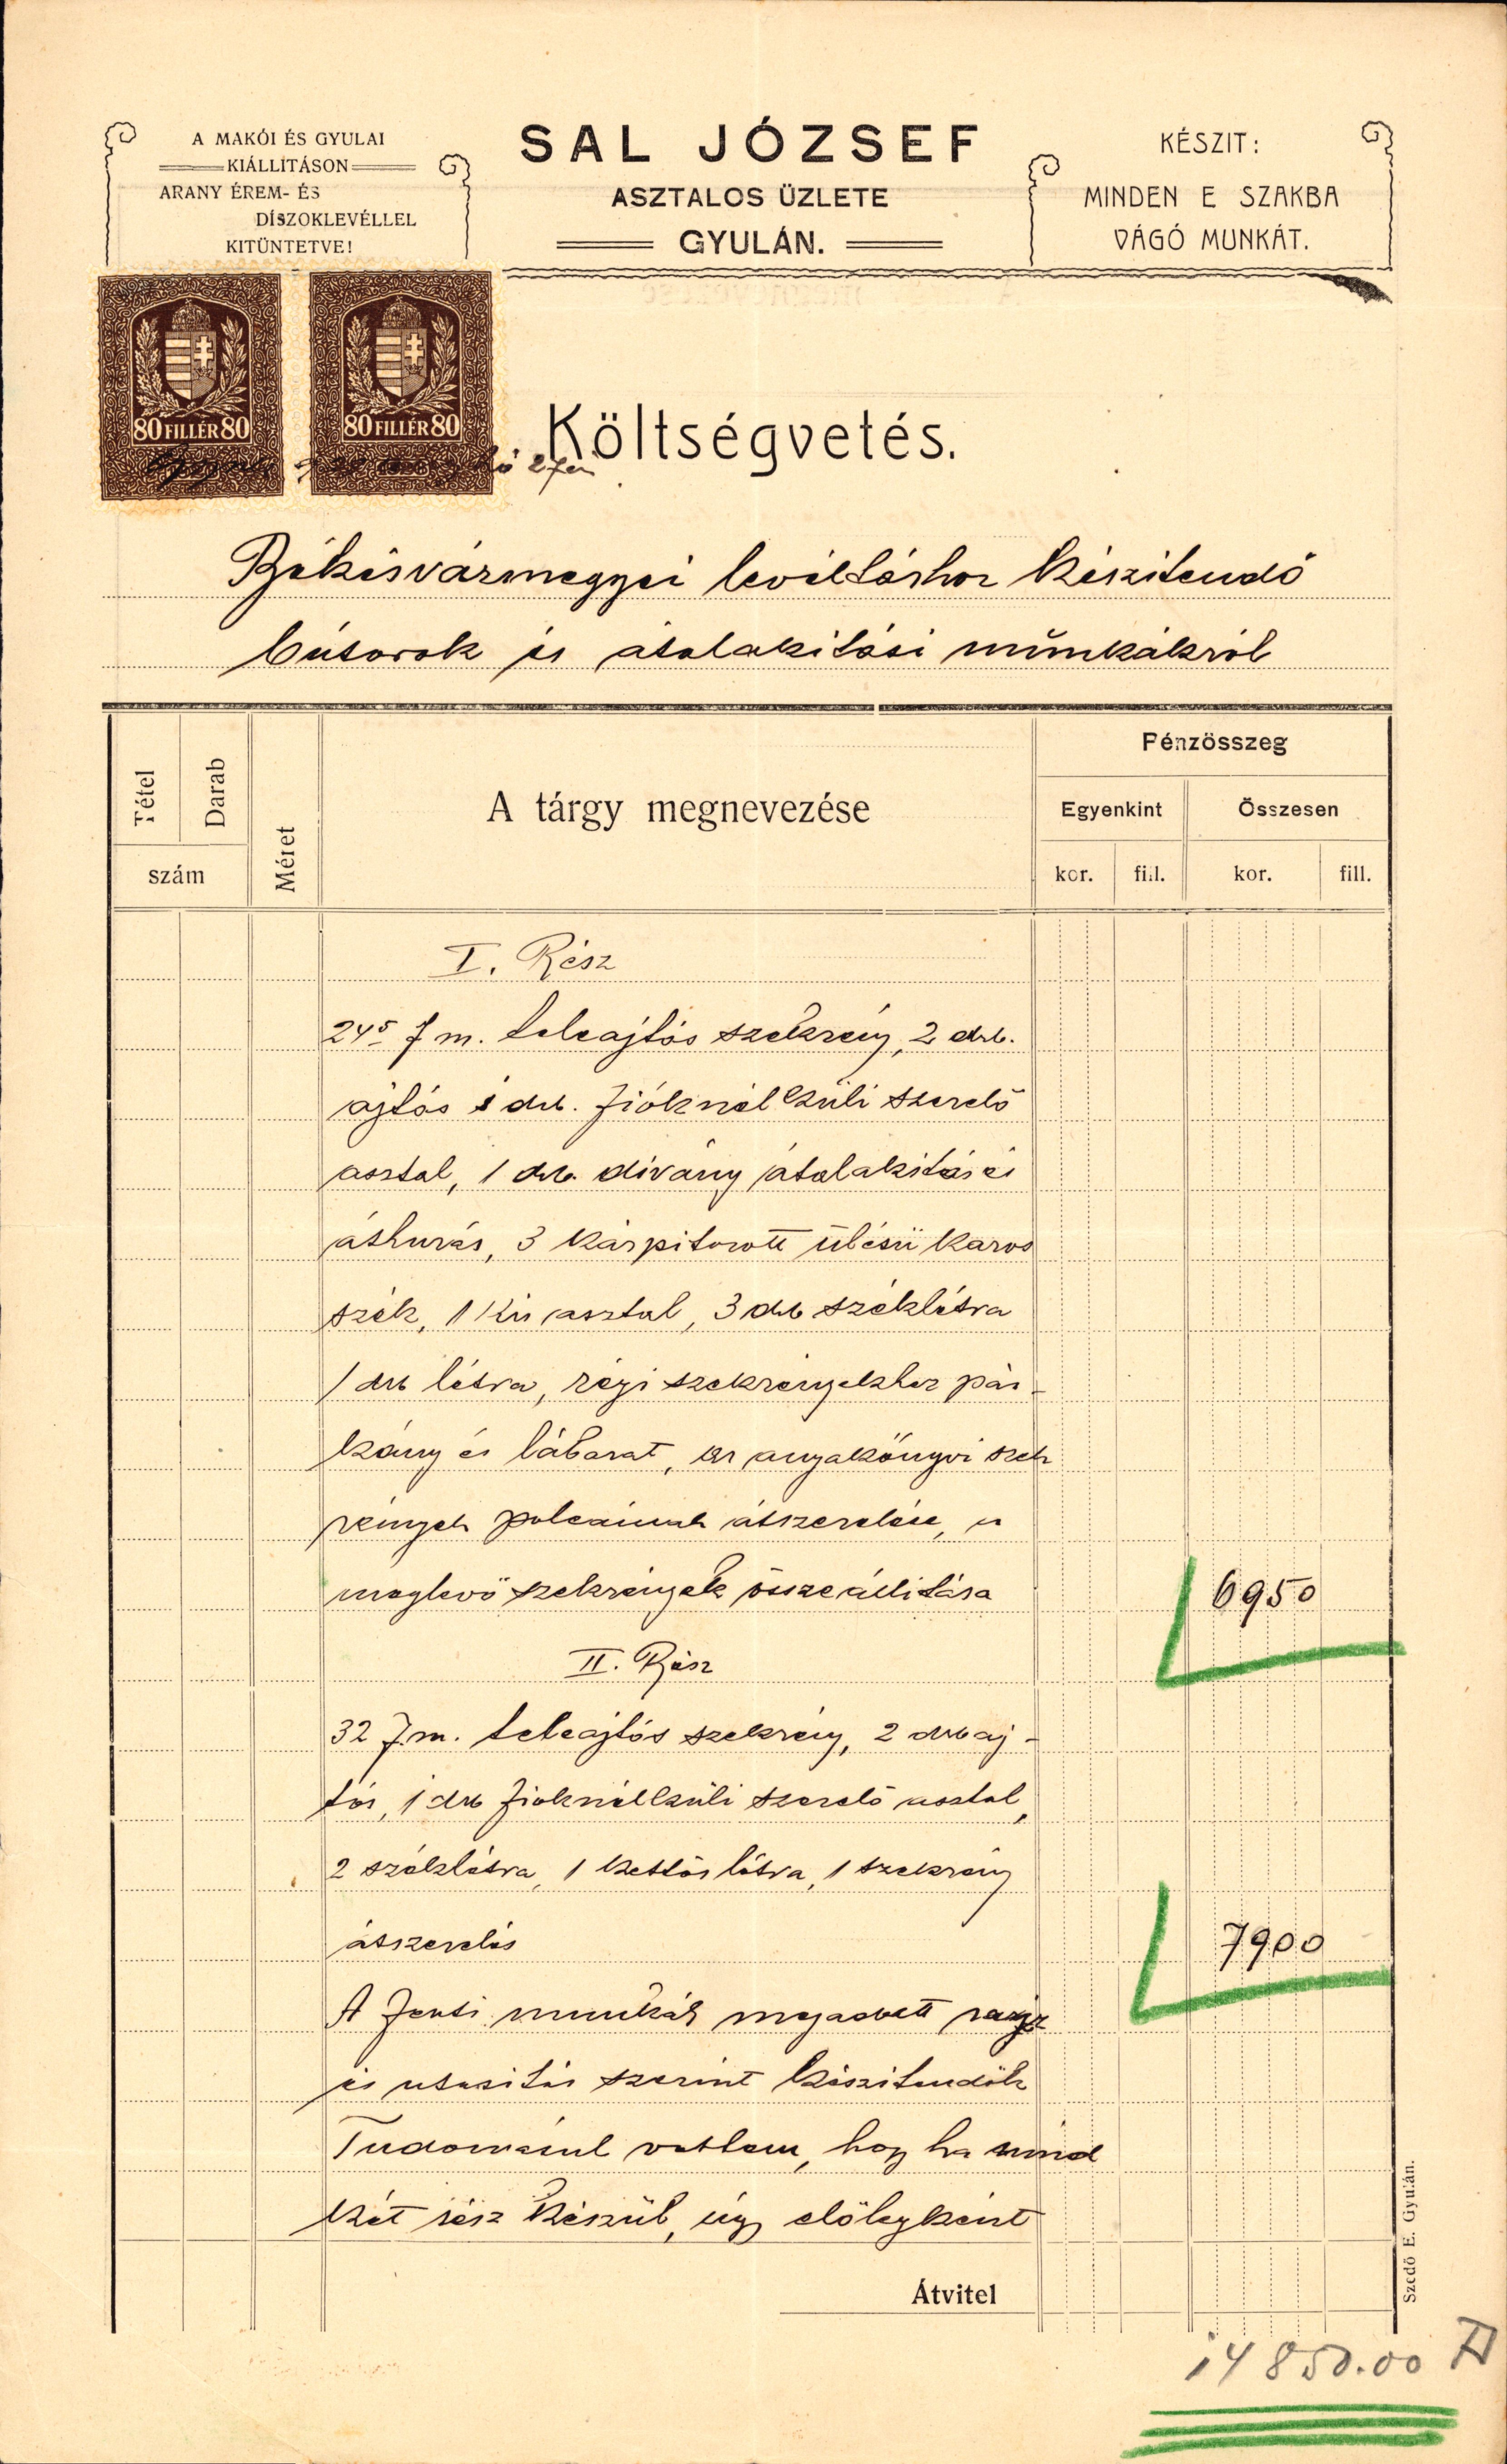 A MAKÓI ÉS GYULAI
KIÁLLITÁSON
ARANY ÉREM- ÉS
DÍSZOKLEVÉLLEL
KITÜNTETVE!
SAL JÓZSEF
ASZTALOS ÜZLETE
GYULÁN.
KÉSZIT:
MINDEN E SZAKBA
VÁGÓ MUNKÁT.
80 FILLÉR 80
80 FILLÉR 80
Költségvetés.
Békésvármegyei levéltárhoz készitendő
bútorok és átalakitási munkákról
Tétel
Darab
szám
Méret
A tárgy megnevezése
Pénzösszeg
Egyenkint
Összesen
kor.
fill.
kor.
fill.
I. Rész
24⁵ f m. teleajtós szekrény, 2 drb.
ajtós 1 drb. fióknélküli szerelő
asztal, 1 drb. diványátalakitás és
áthuzás, 3 kárpitozott ülésü karos
szék, 1 kis asztal, 3 drb széklétra
1 drb létra, régi szekrényekhez pár-
kány és lábazat, az anyakönyvi szek
rények polcainak átszerelése, a
meglevő szekrények összeállitása
6950
II. Rész
32 f.m. teleajtós szekrény, 2 drb aj-
tós, 1 drb fióknélküli szerelő asztal,
2 széklétra, 1 kettős létra, 1 szekrény
átszerelés
7900
A fenti munkák megadott rajz
és utasitás szerint készitendők
Tudomásul vettem, hogy ha mind
két rész készül, úgy előlegként
Átvitel
Szedő E. Gyulán.
14850.00